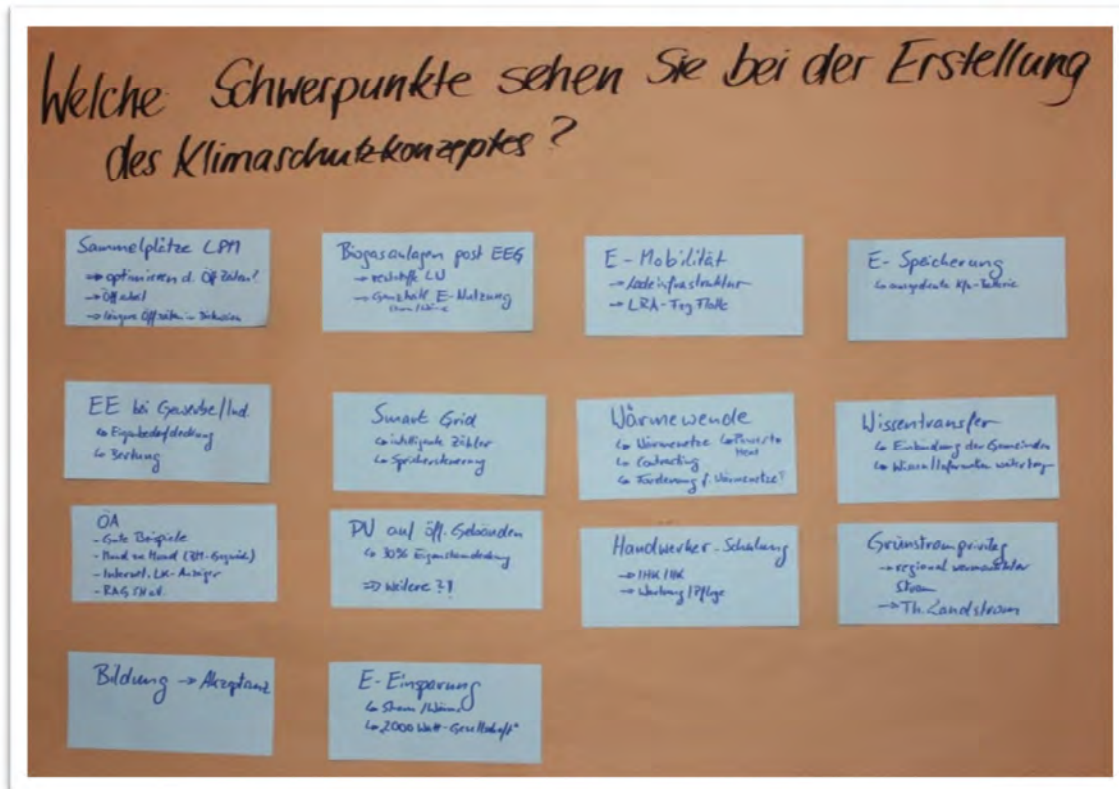 Welche Schwerpunkte sehen Sie bei der Erstellung
des Klimaschutzkonzeptes?
Sammelplätze LPM
→ optimieren d. Öffzeiten?
→ Öffarbeit
→ längere Öffzeiten in
Biogasanlagen post EEG
→ reststoffe LW
→ E-Nutzung
Strom/Wärme
E-Mobilität
→ Ladeinfrastruktur
→ LRA-Fzg Flotte
E-Speicherung
↳ ausgediente Kfz-Batterie
EE bei Gewerbe/Ind.
↳ Eigenbedarfdeckung
Smart Grid
↳ intelligente Zähler
↳ Speichersteuerung
Wärmewende
↳ Wärmenetze ↳ Power to
Heat
↳ Contracting
↳ Förderung f. Wärmenetze?
Wissentransfer
↳ Einbindung der Gemeinden
↳ Wissen/Information
ÖA
- Gute Beispiele
- Mund zu Mund (BM-Gespräch)
- Internet, LK-Anzeiger
- RAG
PV auf öff. Gebäuden
↳ 30% Eigenstromdeckung
⇒ weitere?!
Handwerker-Schulung
→ IHK/HK
→ Wartung/Pflege
Grünstromprivileg
→ regional vermarkteter
Strom
→ Th. Landstrom
Bildung → Akzeptanz
E-Einsparung
↳ Strom/Wärme
↳ 2000 Watt-Gesellschaft"